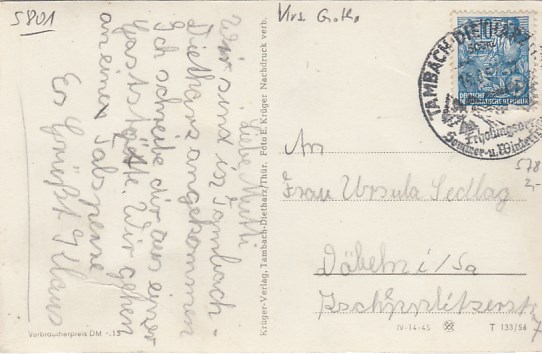 5801
Hrs. G.K.
Liebe Mutti
Wir sind in Tambach-
Dietharz angekommen
Ich schreibe dir aus einer
Gaststätte. Wir gehen
an einer Talsperre
Es Grüßt Klaus
Verbraucherpreis DM -.15
Krüger-Verlag, Tambach-Dietharz/Thür. Foto E. Krüger Nachdruck verb.
TAMBACH-DIETHARZ
DEUTSCHE
DEMOKRATISCHE REPUBLIK
Erholungsort
Sommer-u. Winter
578
2,-
An
Frau Ursula Sedlag
Döbeln i/Sa
Zschepplitzerstr
7
IV-14-45
T 133/56